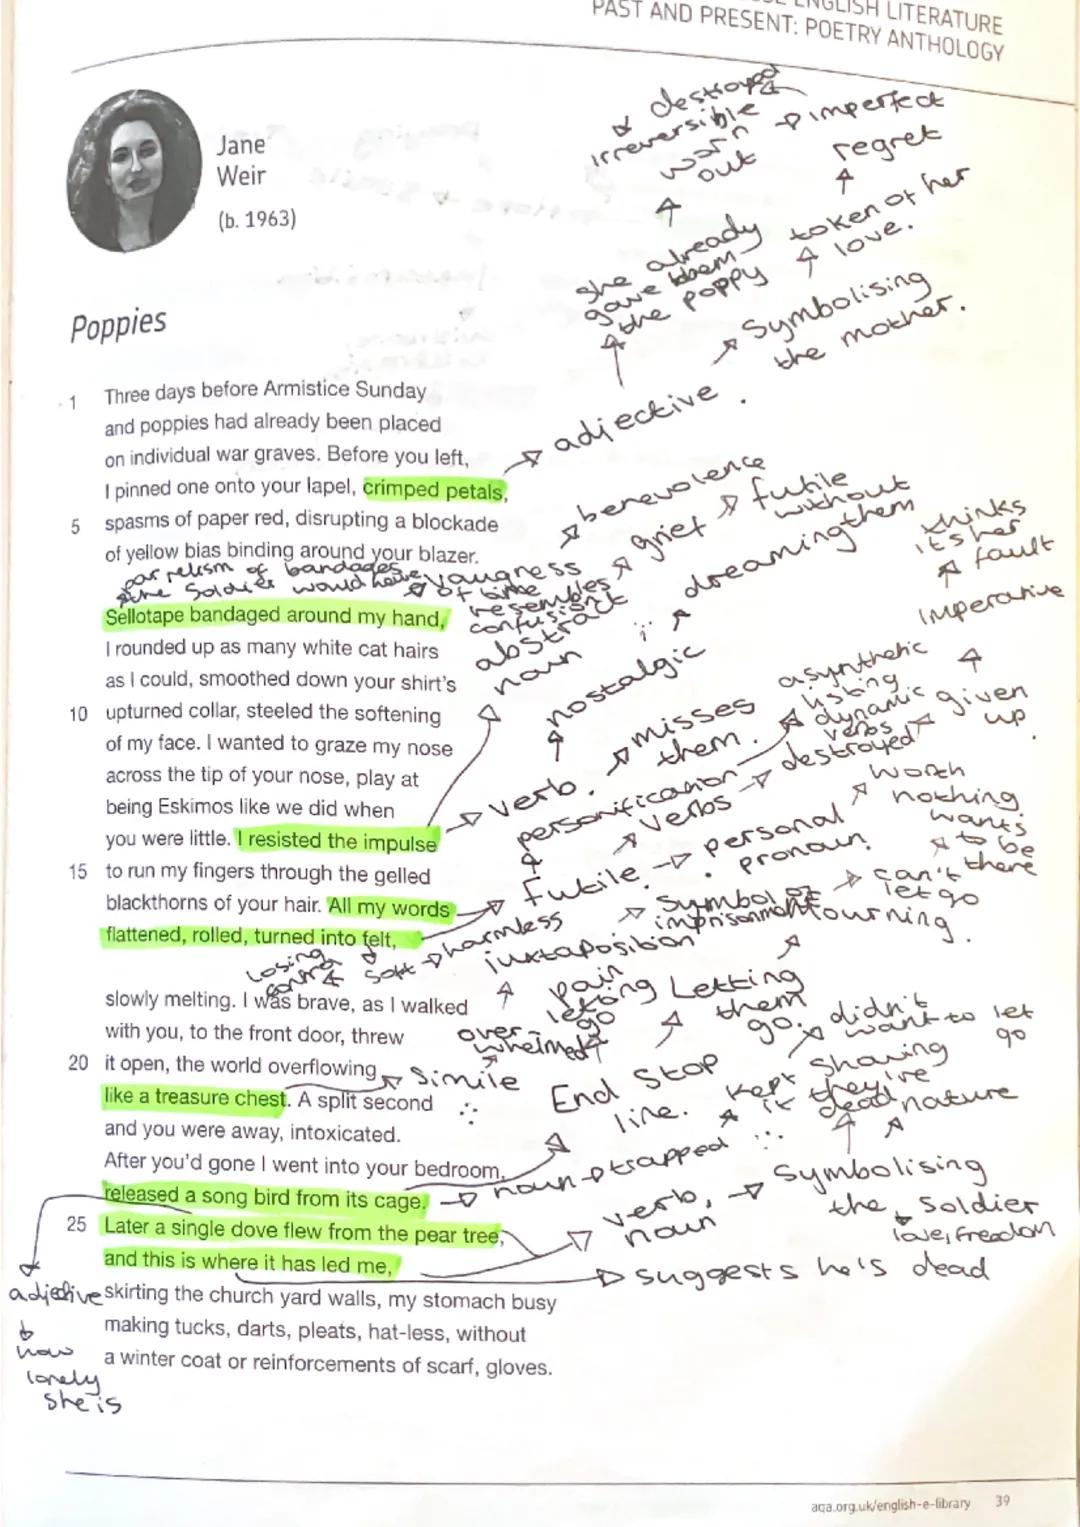 ENGLISH LITERATURE
PAST AND PRESENT: POETRY ANTHOLOGY
Jane
Weir
(b. 1963)
destroyed
irreversible
worn
out
imperfect
regret
token of her
love.
she already
gave them
the poppy
Symbolising
the mother.
adjective
Poppies
1 Three days before Armistice Sunday
and poppies had already been placed
on individual war graves. Before you left,
I pinned one onto your lapel, crimped petals,
5 spasms of paper red, disrupting a blockade
of yellow bias binding around your blazer.
benevolence
grief
futile
without
them
dreaming
thinks
its her
fault
Imperative
bandages
Soldier would have
of time
resembles
abstract
noun
Sellotape bandaged around my hand,
I rounded up as many white cat hairs
as I could, smoothed down your shirt's
10 upturned collar, steeled the softening
of my face. I wanted to graze my nose
across the tip of your nose, play at
being Eskimos like we did when
you were little. I resisted the impulse
15 to run my fingers through the gelled
blackthorns of your hair. All my words
flattened, rolled, turned into felt,
nostalgic
verb.
misses
them.
asynthetic
listing
dynamic
verbs
given
up
personification
verbs
destroyed
worth
nothing
wants
to be
there
Futile
personal
pronoun.
can't
let go
Symbol of
imprisonment
mourning.
harmless
soft
losing
juxtaposition
slowly melting. I was brave, as I walked
with you, to the front door, threw
20 it open, the world overflowing
like a treasure chest. A split second
and you were away, intoxicated.
After you'd gone I went into your bedroom,
released a song bird from its cage.
25 Later a single dove flew from the pear tree,
and this is where it has led me,
skirting the church yard walls, my stomach busy
making tucks, darts, pleats, hat-less, without
a winter coat or reinforcements of scarf, gloves.
over-
whelmed
pain
go
Letting
them
go.
didn't
want to let
go
Simile
End Stop
line.
kept
it
they're
dead
nature
noun
trapped
verb,
noun
Symbolising
the Soldier
love, freedom
suggests he's dead
adjective
how
lonely
she is
aqa.org.uk/english-e-library 39